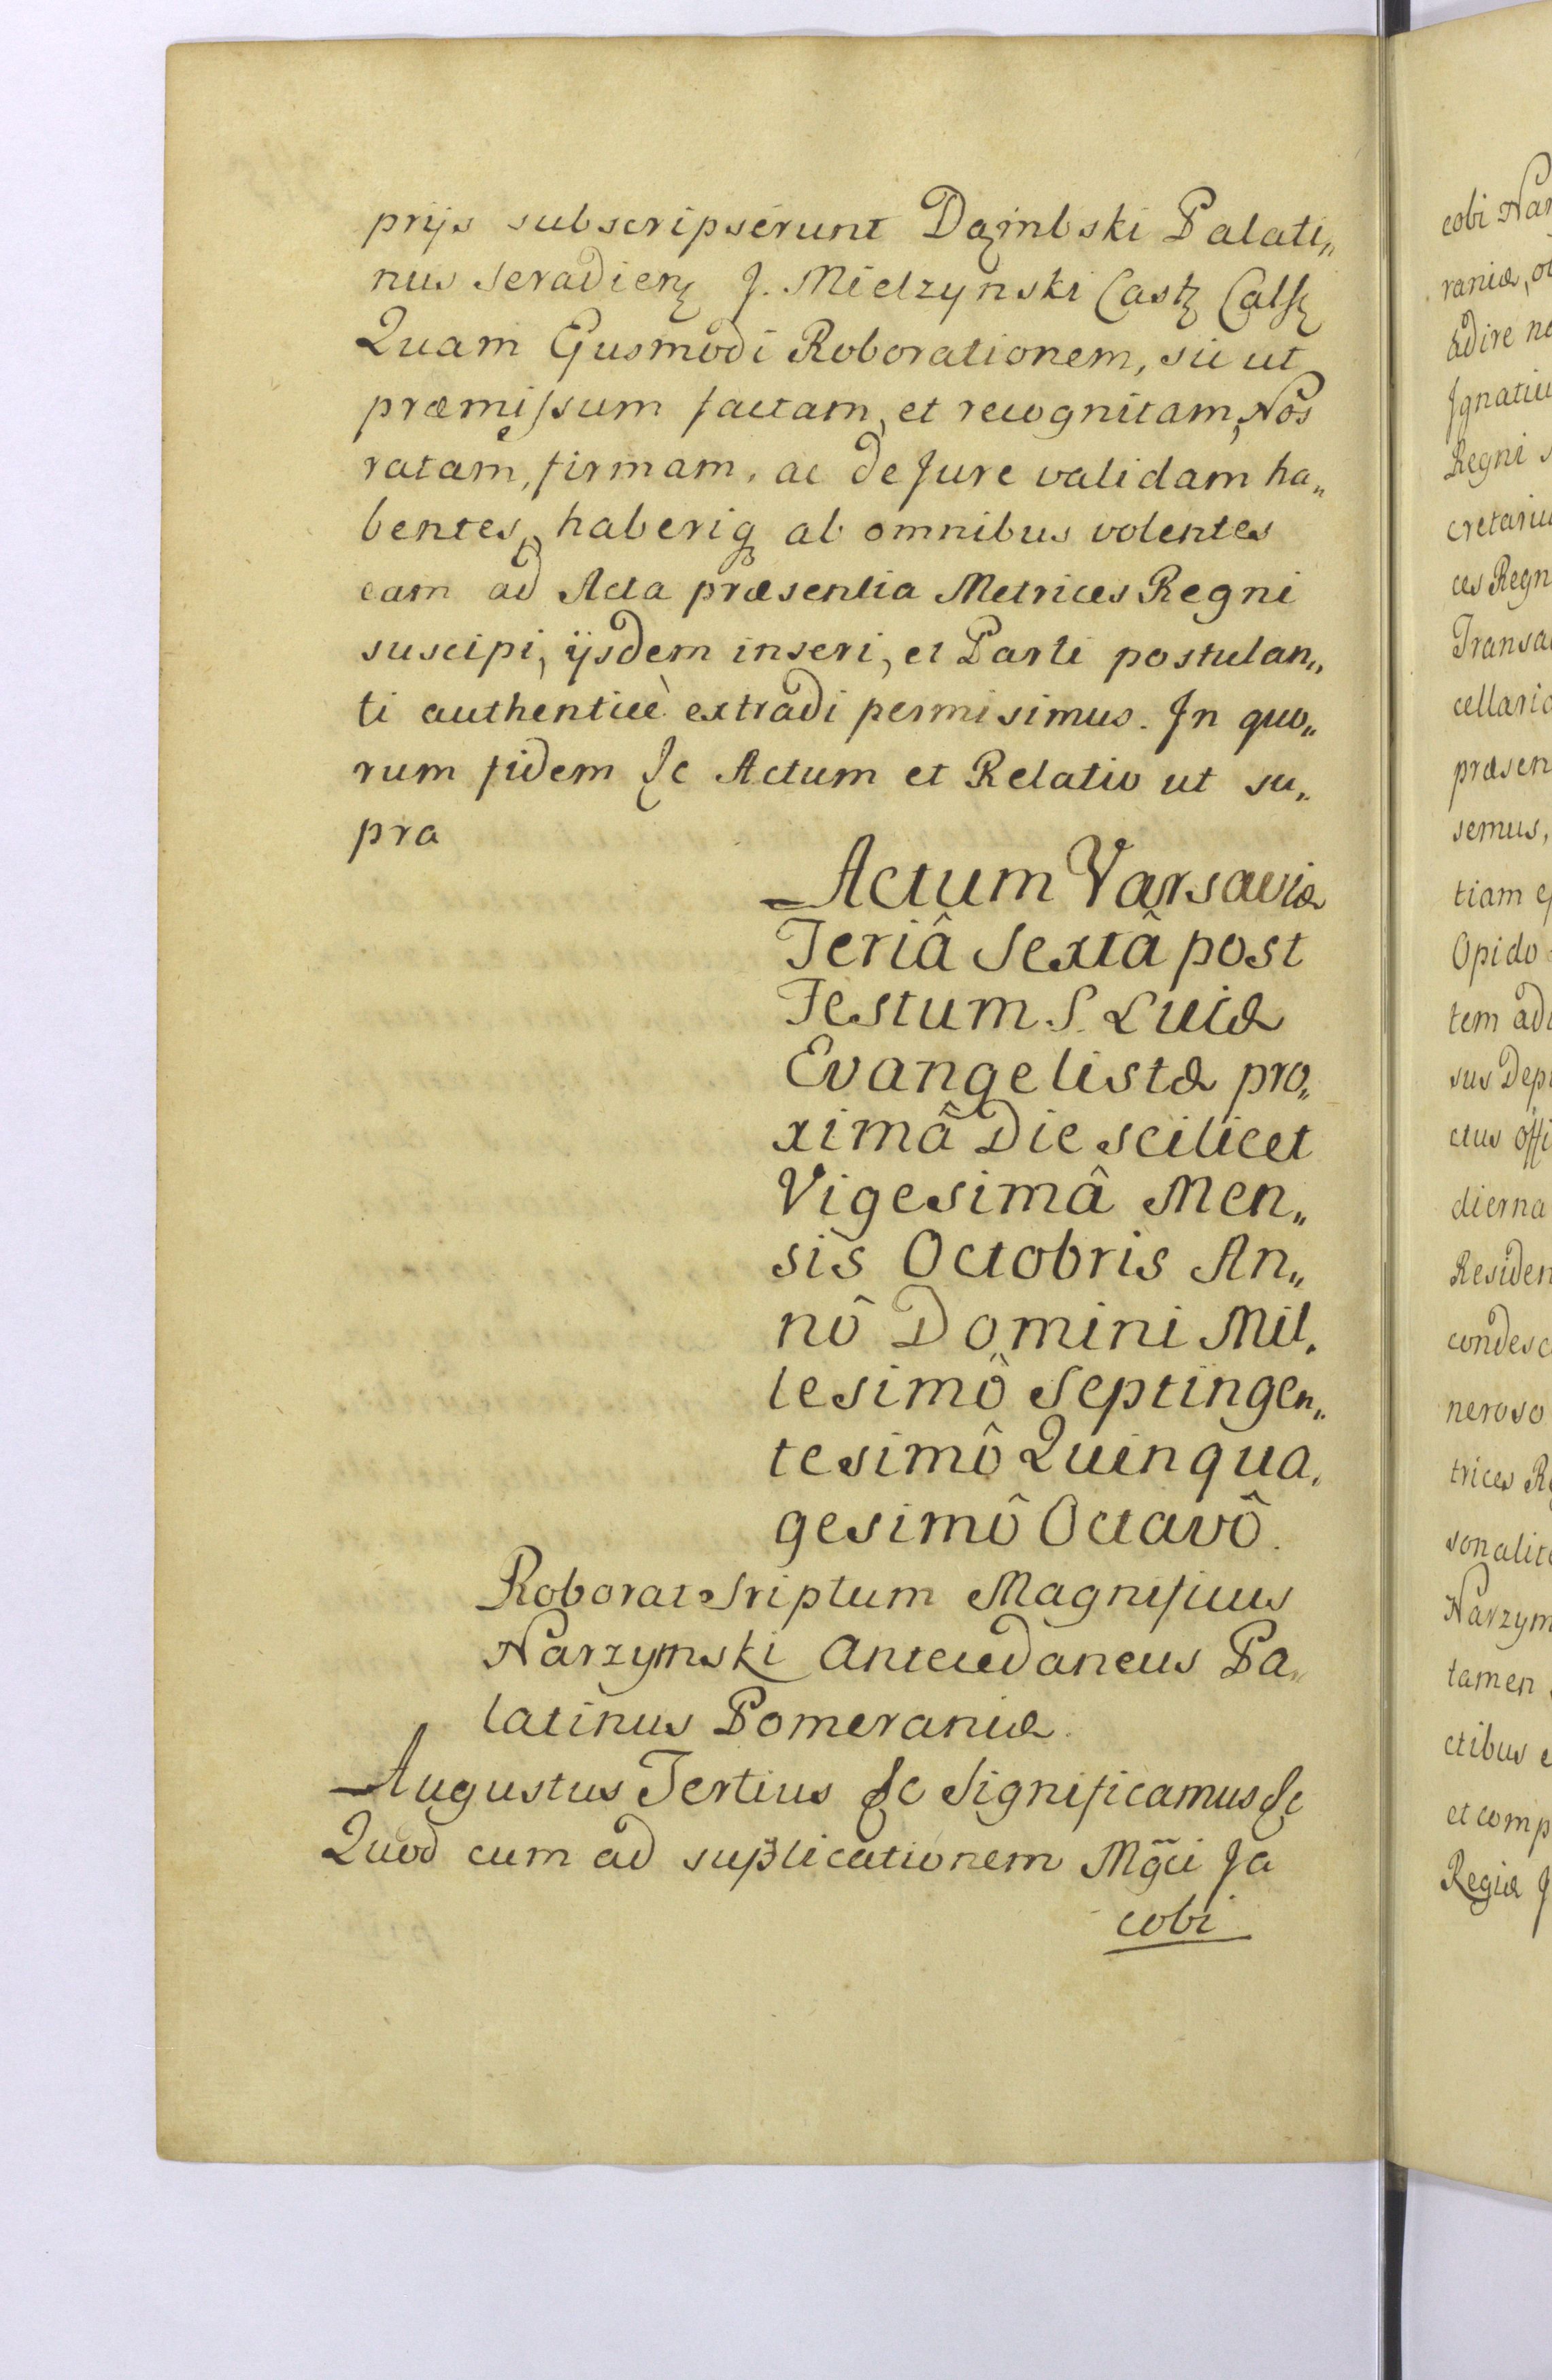 prijs subscripserunt Dąmbski Palati„
nus Seradieñ J. Mielzynski Cast Calis
Quam Ejusmodi Roborationem, sic ut
præmissum factam, et recognitam, Nos
ratam, firmam, ac de Jure validam ha„
bentes, haberiq ab omnibus volentes
eam ad Acta præsentia Metrices Regni
suscipi, ijsdem inseri, et Parti postulan„
ti authenticè extradi permisimus. In quo„
rum fidem &c Actum et Relatio ut su„
pra
Actum Varsaviæ
Feriâ Sextâ post
Festum S. Lucæ
Evangelistæ pro„
ximâ Die scilicet
Vigesimâ Men„
sis Octobris An„
nô Domini Mil„
lesimô Septingen„
tesimô Quinqua„
gesimô Octavô.
Roborat Sriptum Magnificus
Narzymski Antecedaneus Pa„
latinus Pomeraniæ.
Augustus Tertius &c Significamus &c
Quod cum ad suplicationem Mgci Ja
cobi
cobi Nar
raniæ, ol
adire ne
Ignatiu
Regni s
cretariu
ces Regn
Transa
cellaric
præsen
semus,
tiam ej
Opido
tem adi
sus Dep
ctus offi
dierna
Residen
condesc
neroso
trices Re
sonalit
Narzym
tamen
ctibus e
et comp
Regiæ J